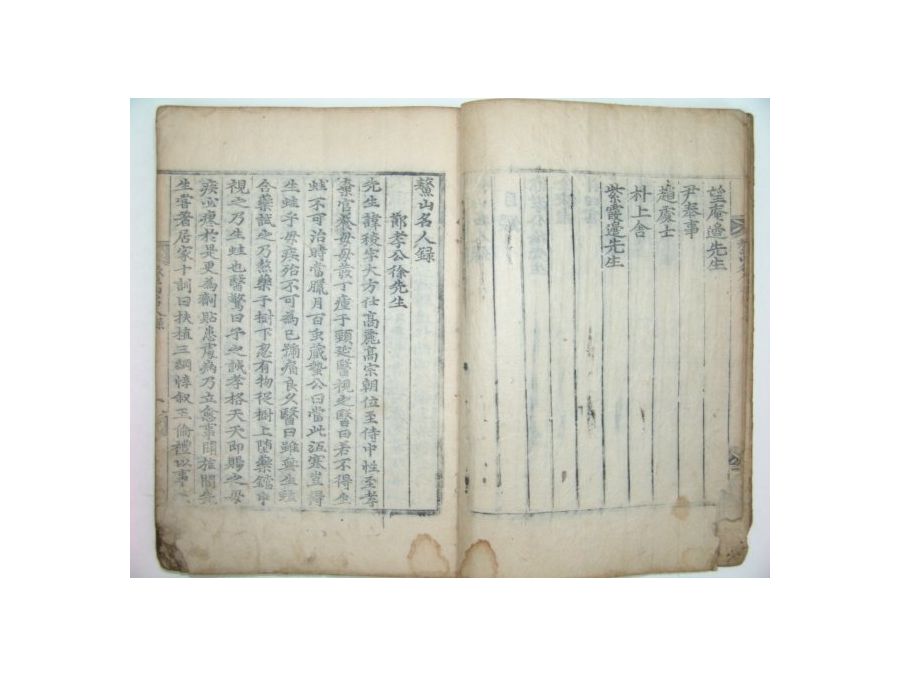 望庵邊先生
尹奉事
趙處士
朴上舍
紫霞邊先生
鰲山名人錄
節孝公徐先生
先生諱稜字大方仕高麗高宗朝位至侍中性至孝
棄官養母母發丁瘇于頸延醫視之醫曰若不得生
蛙不可治時當臘月百虫藏蟄公曰當此沍寒豈得
生蛙乎母疾殆不可為已踊痛良久醫曰雖無生蛙
合藥試之乃熬藥于樹下忽有物從樹上墮藥鐺中
視之乃生蛙也醫驚曰子之誠孝格天天即賜之母
疾必瘳於是更為劑貼患處病乃立愈事聞旌閭先
生嘗著居家十訓曰扶植三綱惇叙五倫禮以事